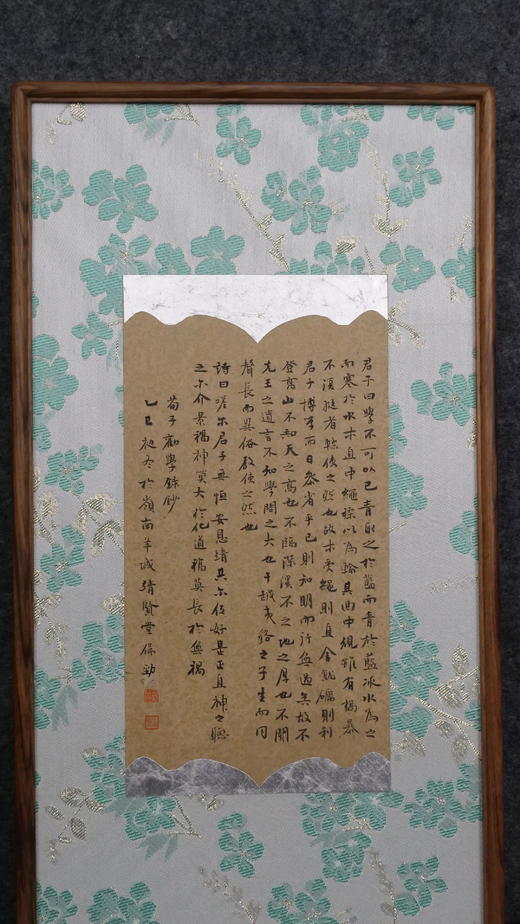 君子曰學不可以已青取之於藍而青於藍冰水為之
而寒於水木直中繩輮以為輪其曲中規雖有槁暴
不復挺者輮使之然也故木受繩則直金就礪則利
君子博學而日參省乎己則知明而行無過矣故不
登高山不知天之高也不臨深溪不之地之厚也不聞
先王之遺言不知學問之大也干越夷貉之子生而同
聲長而異俗教使之然也
詩曰嗟尔君子無恒安息靖共尔位好是正直神之聽
之尔介景福神莫大於化道福莫長於無禍
荀子勸學錄鈔
乙巳冬於嶺南羊城靖賢堂保勁